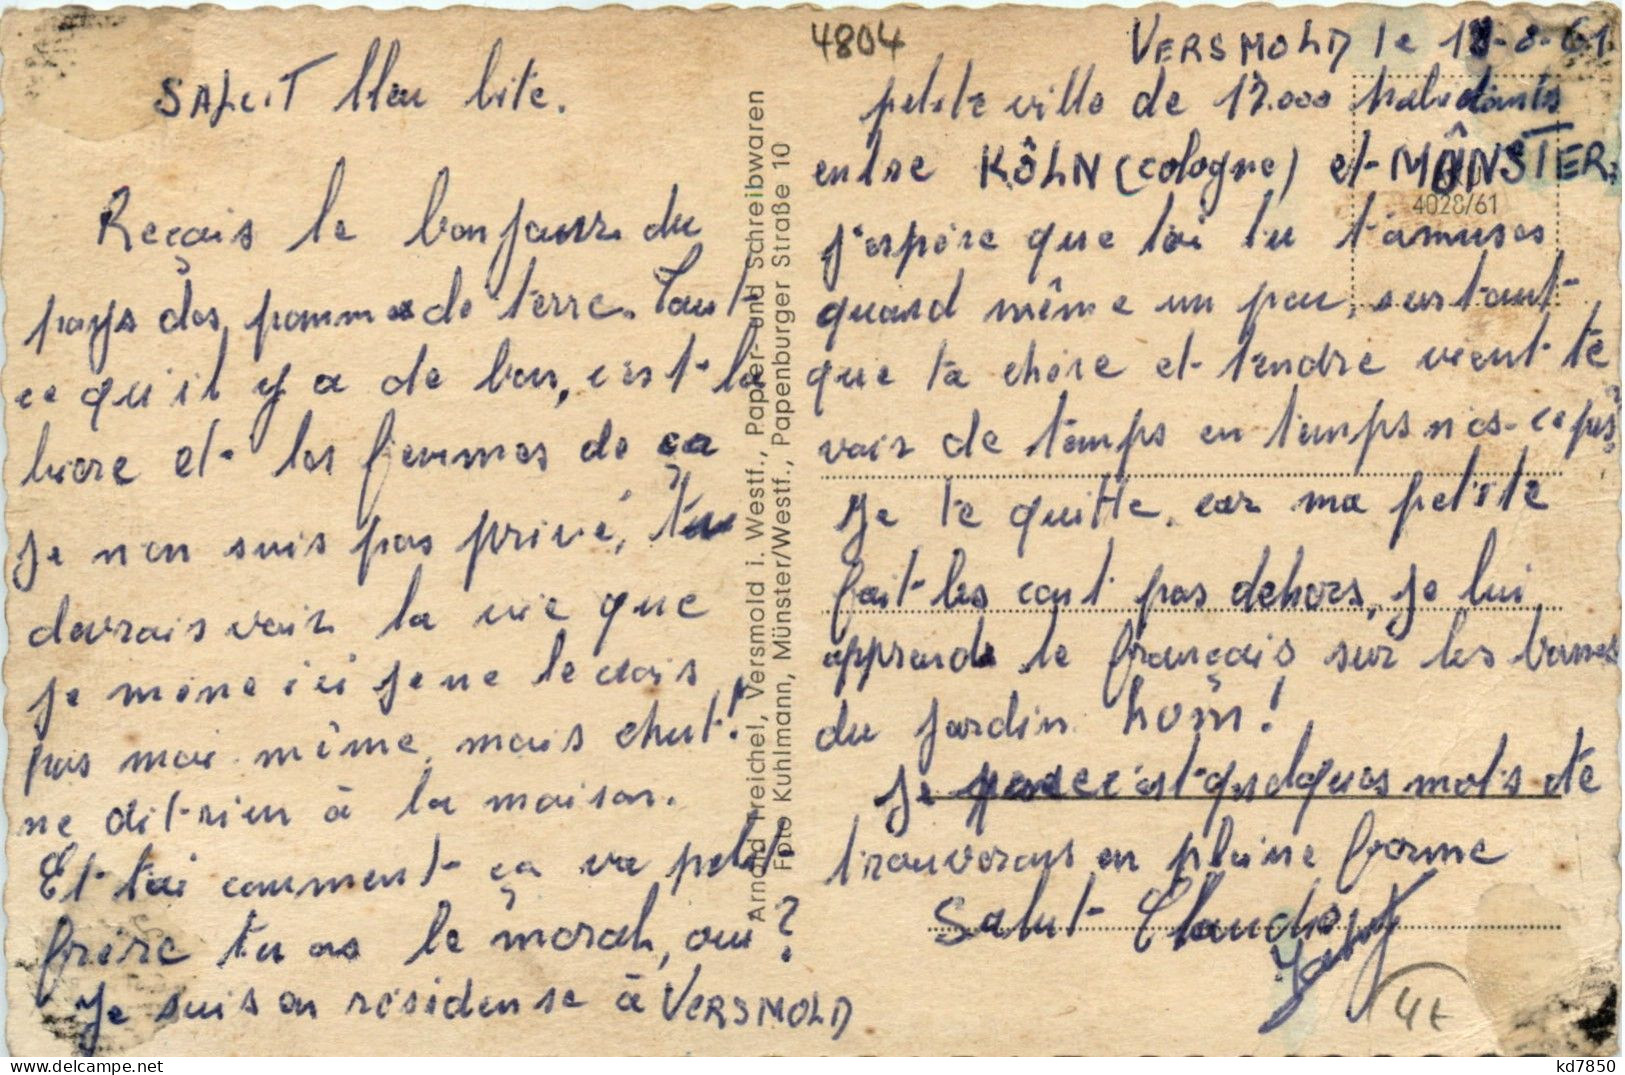 4804
VERSMOLD le 18-8-61
SALUT bleu bite.
Reçois le bonjour du
pays des pommes de terre. Tout
ce qu'il y a de bon, c'est la
biere et les femmes de ça
je n'en suis pas privé, tu
devrais voir la vie que
je mène ici je ne le dois
pas moi même, mais chut!
ne dit rien à la maison.
Et toi comment ça va petit
frère tu as le moral, oui?
Je suis en résidense à VERSMOLD
petite ville de 17.000 habitants
entre KÔLN (cologne) et MÛNSTER.
j'espère que toi tu t'amuses
quand même un peu, surtout
que ta chère et tendre vient te
voir de temps en temps n'es-ce pas?
Je te quitte, car ma petite
fait les cent pas dehors, je lui
apprends le français sur les bancs
du jardin hom!
Je pense c'est quelques mots te
trouverons en pleine forme
Salut Claude
Arnold Freichel, Versmold i. Westf., Papier- und Schreibwaren
Foto Kuhlmann, Münster/Westf., Papenburger Straße 10
4028/61
4t
kd7850